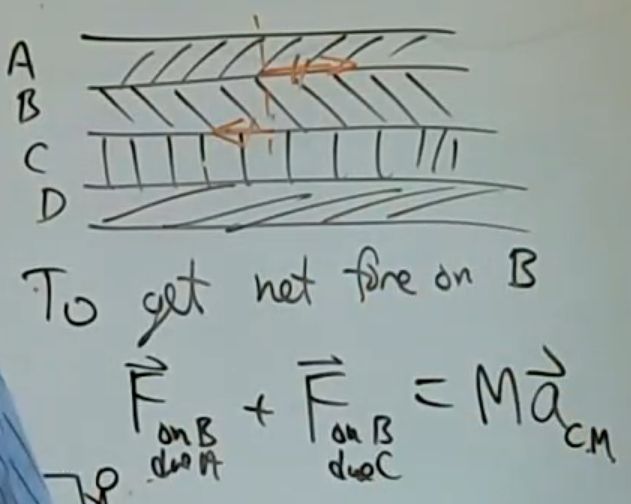 A
B
C
D
To get net force on B
F⃗ on B due A + F⃗ on B due C = M a⃗ CM